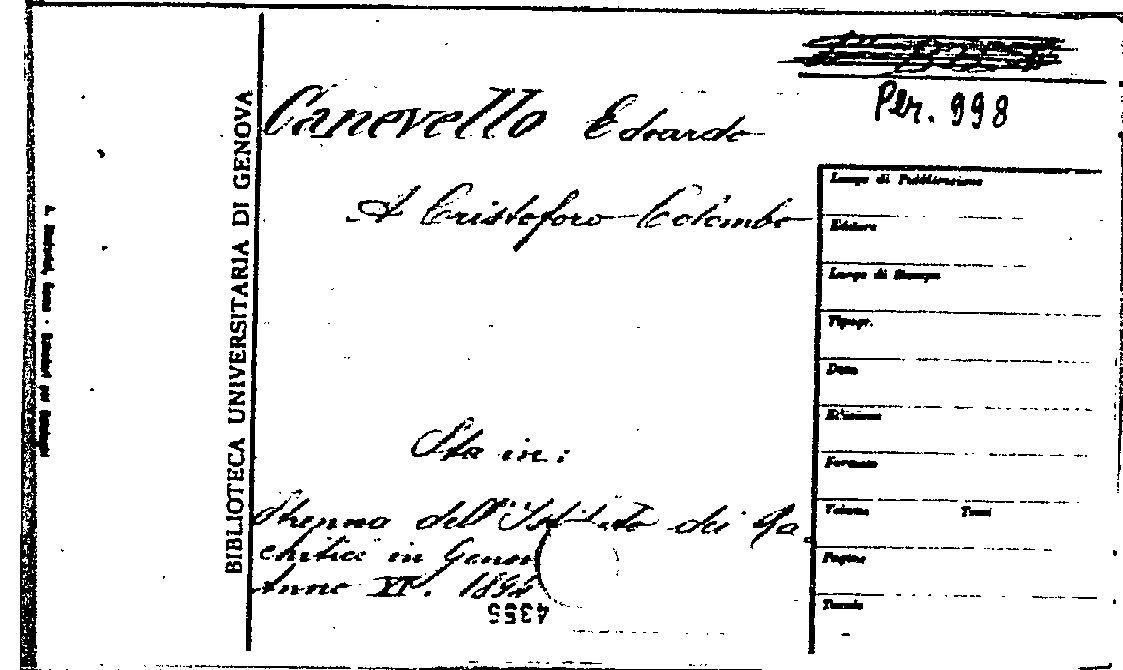 Per. 998
Canevello Edoardo
A Cristoforo Colombo
Sta in:
Strenna dell'Istituto dei Ra-
chitici in Genova
Anno XI. 1892
4355
BIBLIOTECA UNIVERSITARIA DI GENOVA
Luogo di Pubblicazione
Editore
Luogo di Stampa
Tipogr.
Data
Edizione
Formato
Volume Tomi
Pagine
Tavole